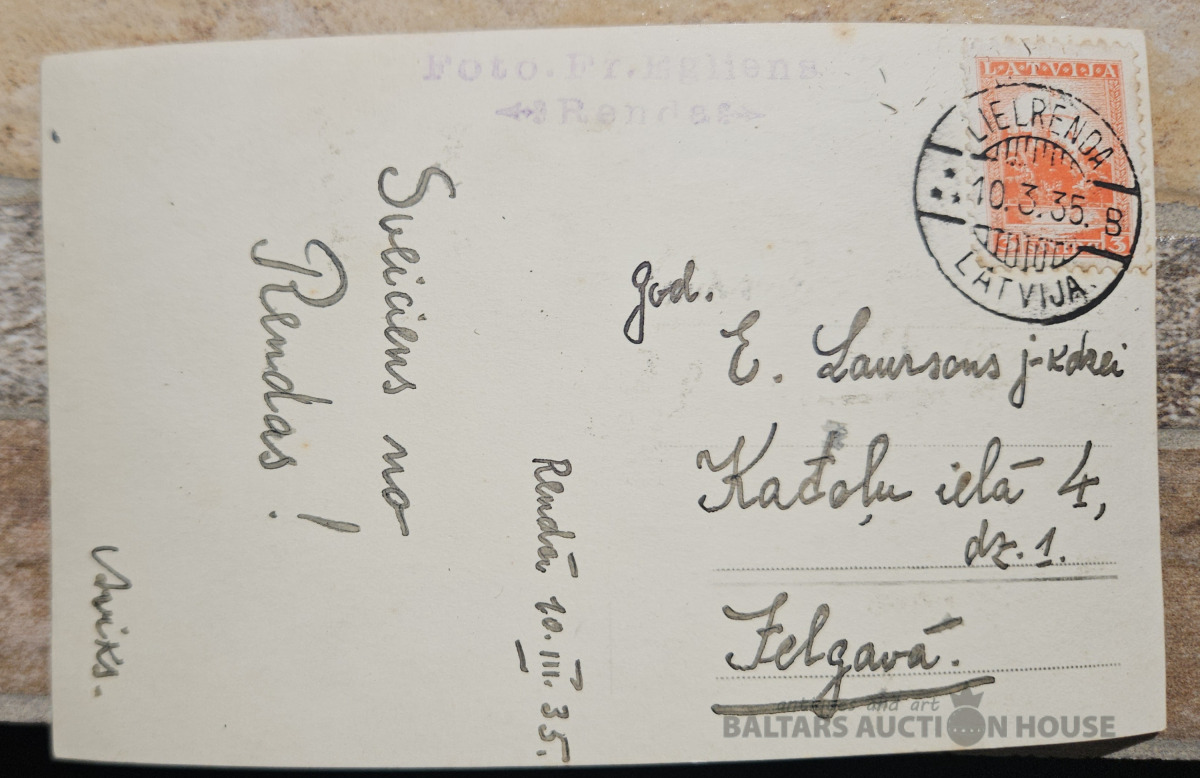 Foto.Fr.Egliens
Renda
LATVIJA
3
LIELRENDA
10.3.35. B
LATVIJA.
Sveiciens no
Rendas!
Rendā 10.III.35.
god.
E. Laursons j-kdzei
Katoļu ielā 4,
dz. 1.
Jelgavā.
antiques and art
BALTARS AUCTION HOUSE